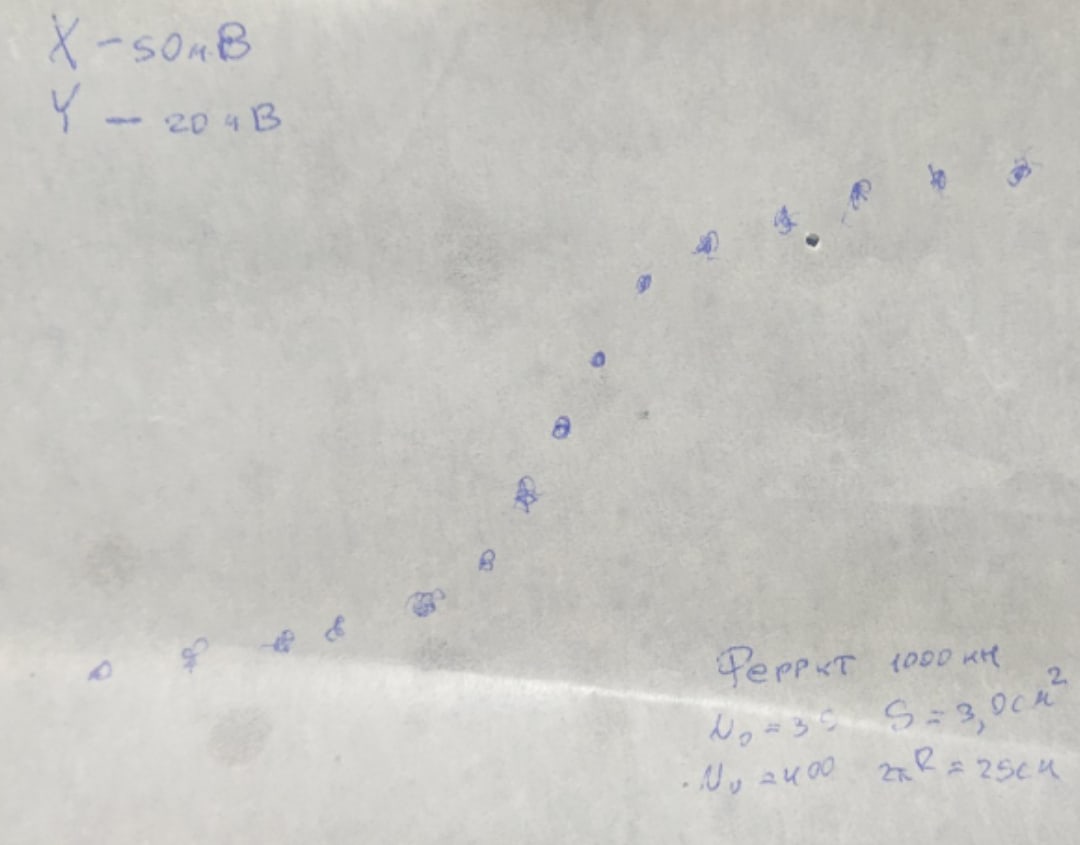 X - 50мВ
Y - 20мВ
Феррит 1000нн
N₀ = 35 S = 3,0см²
Nᵤ = 400 2πR = 25см